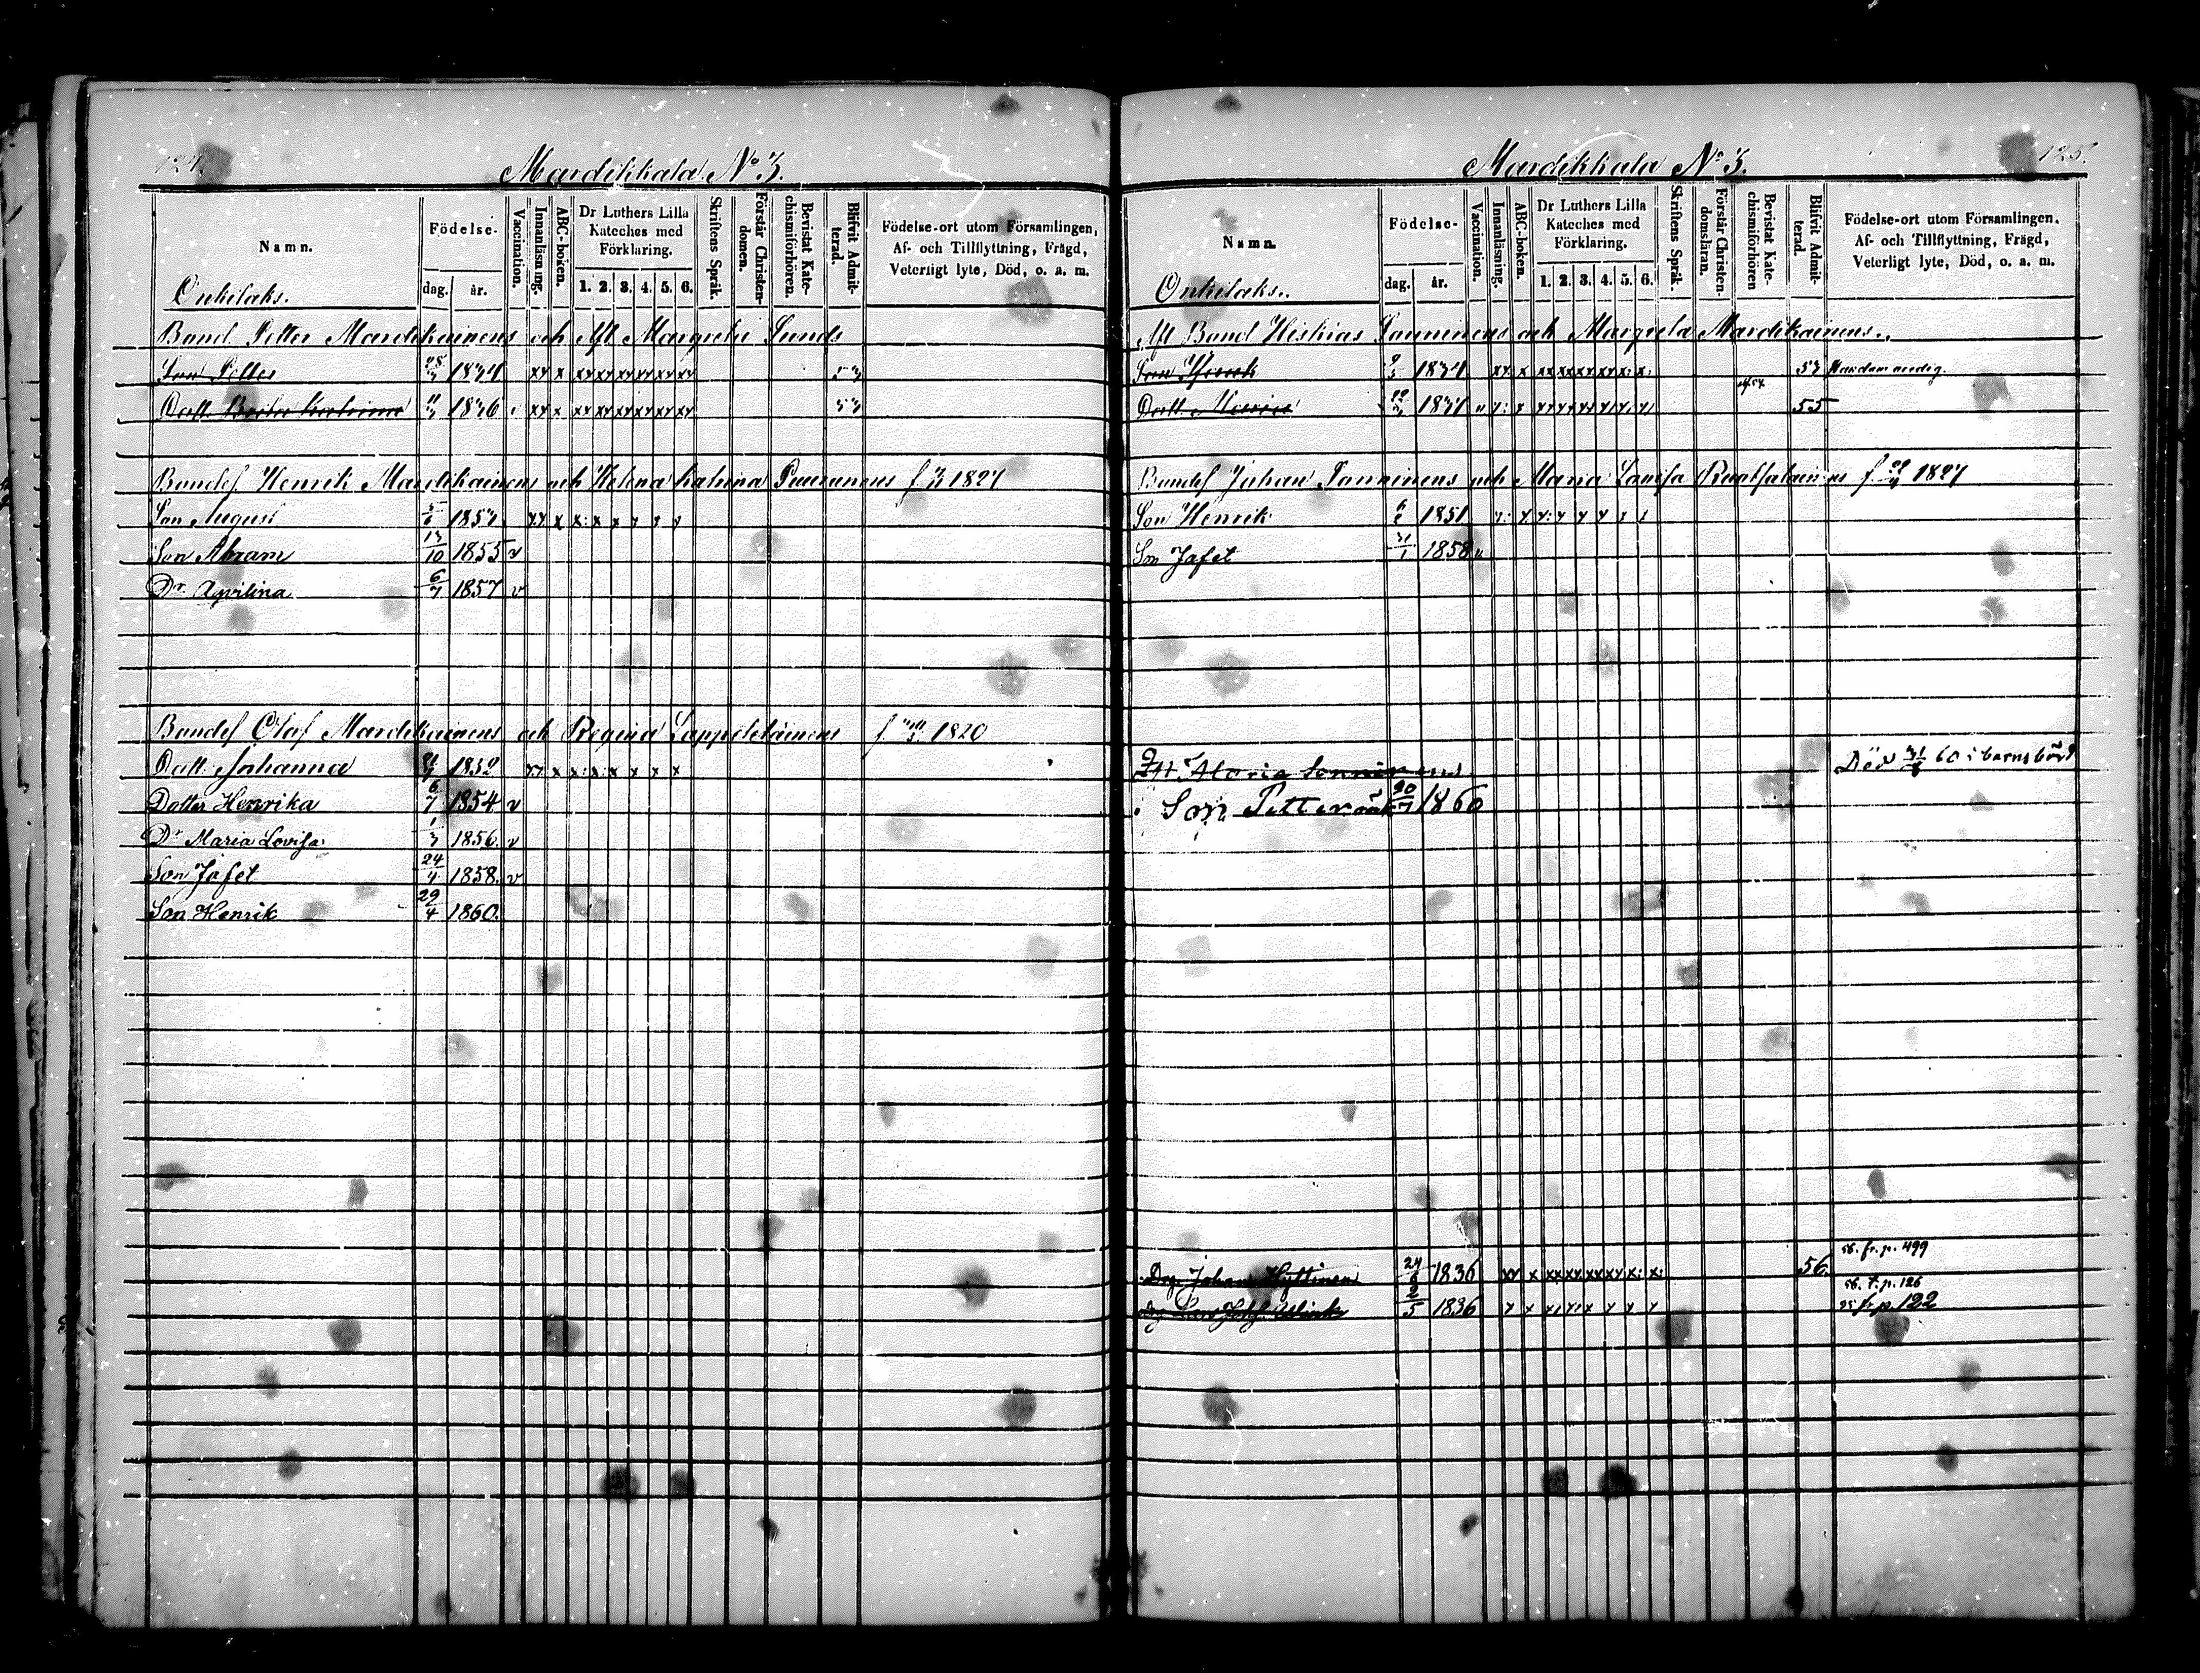 124.
Mardikkala No 3.
Namn.
Födelse-
dag. år.
Vaccination.
Innanläsning.
ABC-boken.
Dr Luthers Lilla Kateches med Förklaring.
1. 2. 3. 4. 5. 6.
Skriftens Språk.
Förstår Christendomen.
Bevistat Katechismiförhören.
Blifvit Admitterad.
Födelse-ort utom Församlingen, Af- och Tillflyttning, Frägd, Veterligt lyte, Död, o. a. m.
Onkilaks.
Bond Petter Mardikainens och Aft Margreta Sunds
Son Petter 1834 xx x xx xx xx xx xx xx 53
Dott. Brita Katrina 1836 xx x xx xx xx xx xx xx 53
Bondes Henrik Mardikainens och Helena Katrina f 1827
Son August 1853 xx x x: x x
Son Abram 13/10 1855 v
Dr. Aprilina 6/7 1857 v
Bondes Olof Mardikainens och Regina Lappeteläinens f. 1820
Dott. Johanna 1852 xx x x: x: x x x x
Dotter Henrika 6/7 1854 v
Dr Maria Lovisa 1/3 1856. v
Son Jafet 24/4 1858. v
Son Henrik 29/4 1860.
125.
Mardikkala No 3.
Namn.
Födelse-
dag. år.
Vaccination.
Innanläsning.
ABC-boken.
Dr Luthers Lilla Kateches med Förklaring.
1. 2. 3. 4. 5. 6.
Skriftens Språk.
Förstår Christendomsläran.
Bevistat Katechismiförhören
Blifvit Admitterad.
Födelse-ort utom Församlingen, Af- och Tillflyttning, Frägd, Veterligt lyte, Död, o. a. m.
Onkilaks.
Aft Bond Hiskias Sanninens och Margreta Mardikainens.
Son 1834 xx x xx xx xx xx x: x: 53
Dott. Maria 55
Bondes Johan Sanninens och Maria Lovisa f 1827
Son Henrik 1851
Son Jafet 31/1 1858 v
Maria Sonninens Död 60 i barnsbörd
Son Petter 20/7 1860
56. fr. p. 499
Drg. Johan Hyttinen 24/8 1836 xx x xx xx xx xx x: x: 56.
56. t. p. 126
2/5 1836 fr p 122